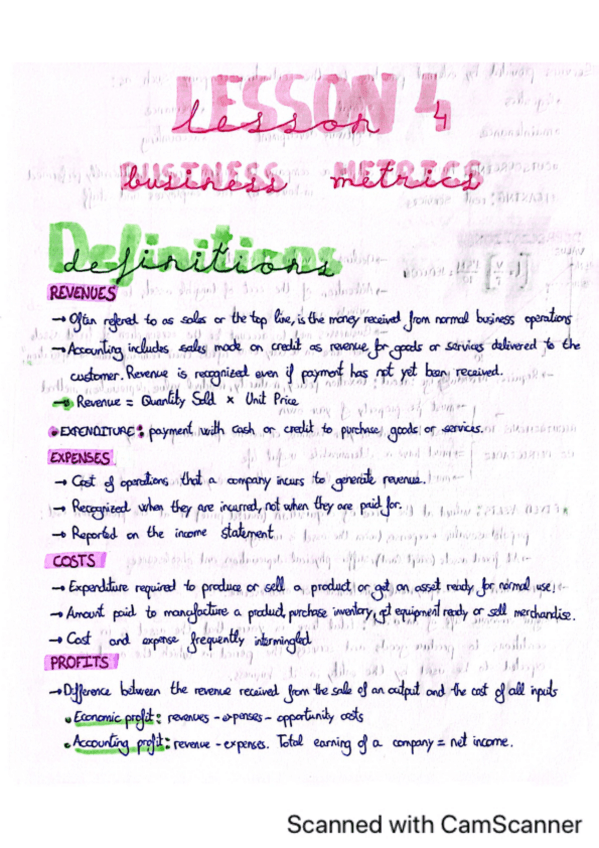 LESSON 4
lesson 4
BUSINESS METRICS
business metrics
Definitions
definitions
REVENUES
→ Often refered to as sales or the top line, is the money received from normal business operations
→ Accounting includes sales made on credit as revenue for goods or services delivered to the
customer. Revenue is recognized even if payment has not yet been received.
→ Revenue = Quantity Sold × Unit Price
• EXPENDITURE: payment with cash or credit to purchase goods or services.
EXPENSES
→ Cost of operations that a company incurs to generate revenue.
→ Recognized when they are incurred, not when they are paid for.
→ Reported on the income statement
COSTS
→ Expenditure required to produce or sell a product, or get an asset ready for normal use
→ Amount paid to manufacture a product, purchase inventory, get equipment ready or sell merchandise.
→ Cost and expense frequently intermingled
PROFITS
→ Difference between the revenue received from the sale of an output and the cost of all inputs
• Economic profit: revenues - expenses - opportunity costs
• Accounting profit: revenue - expenses. Total earning of a company = net income.
Scanned with CamScanner